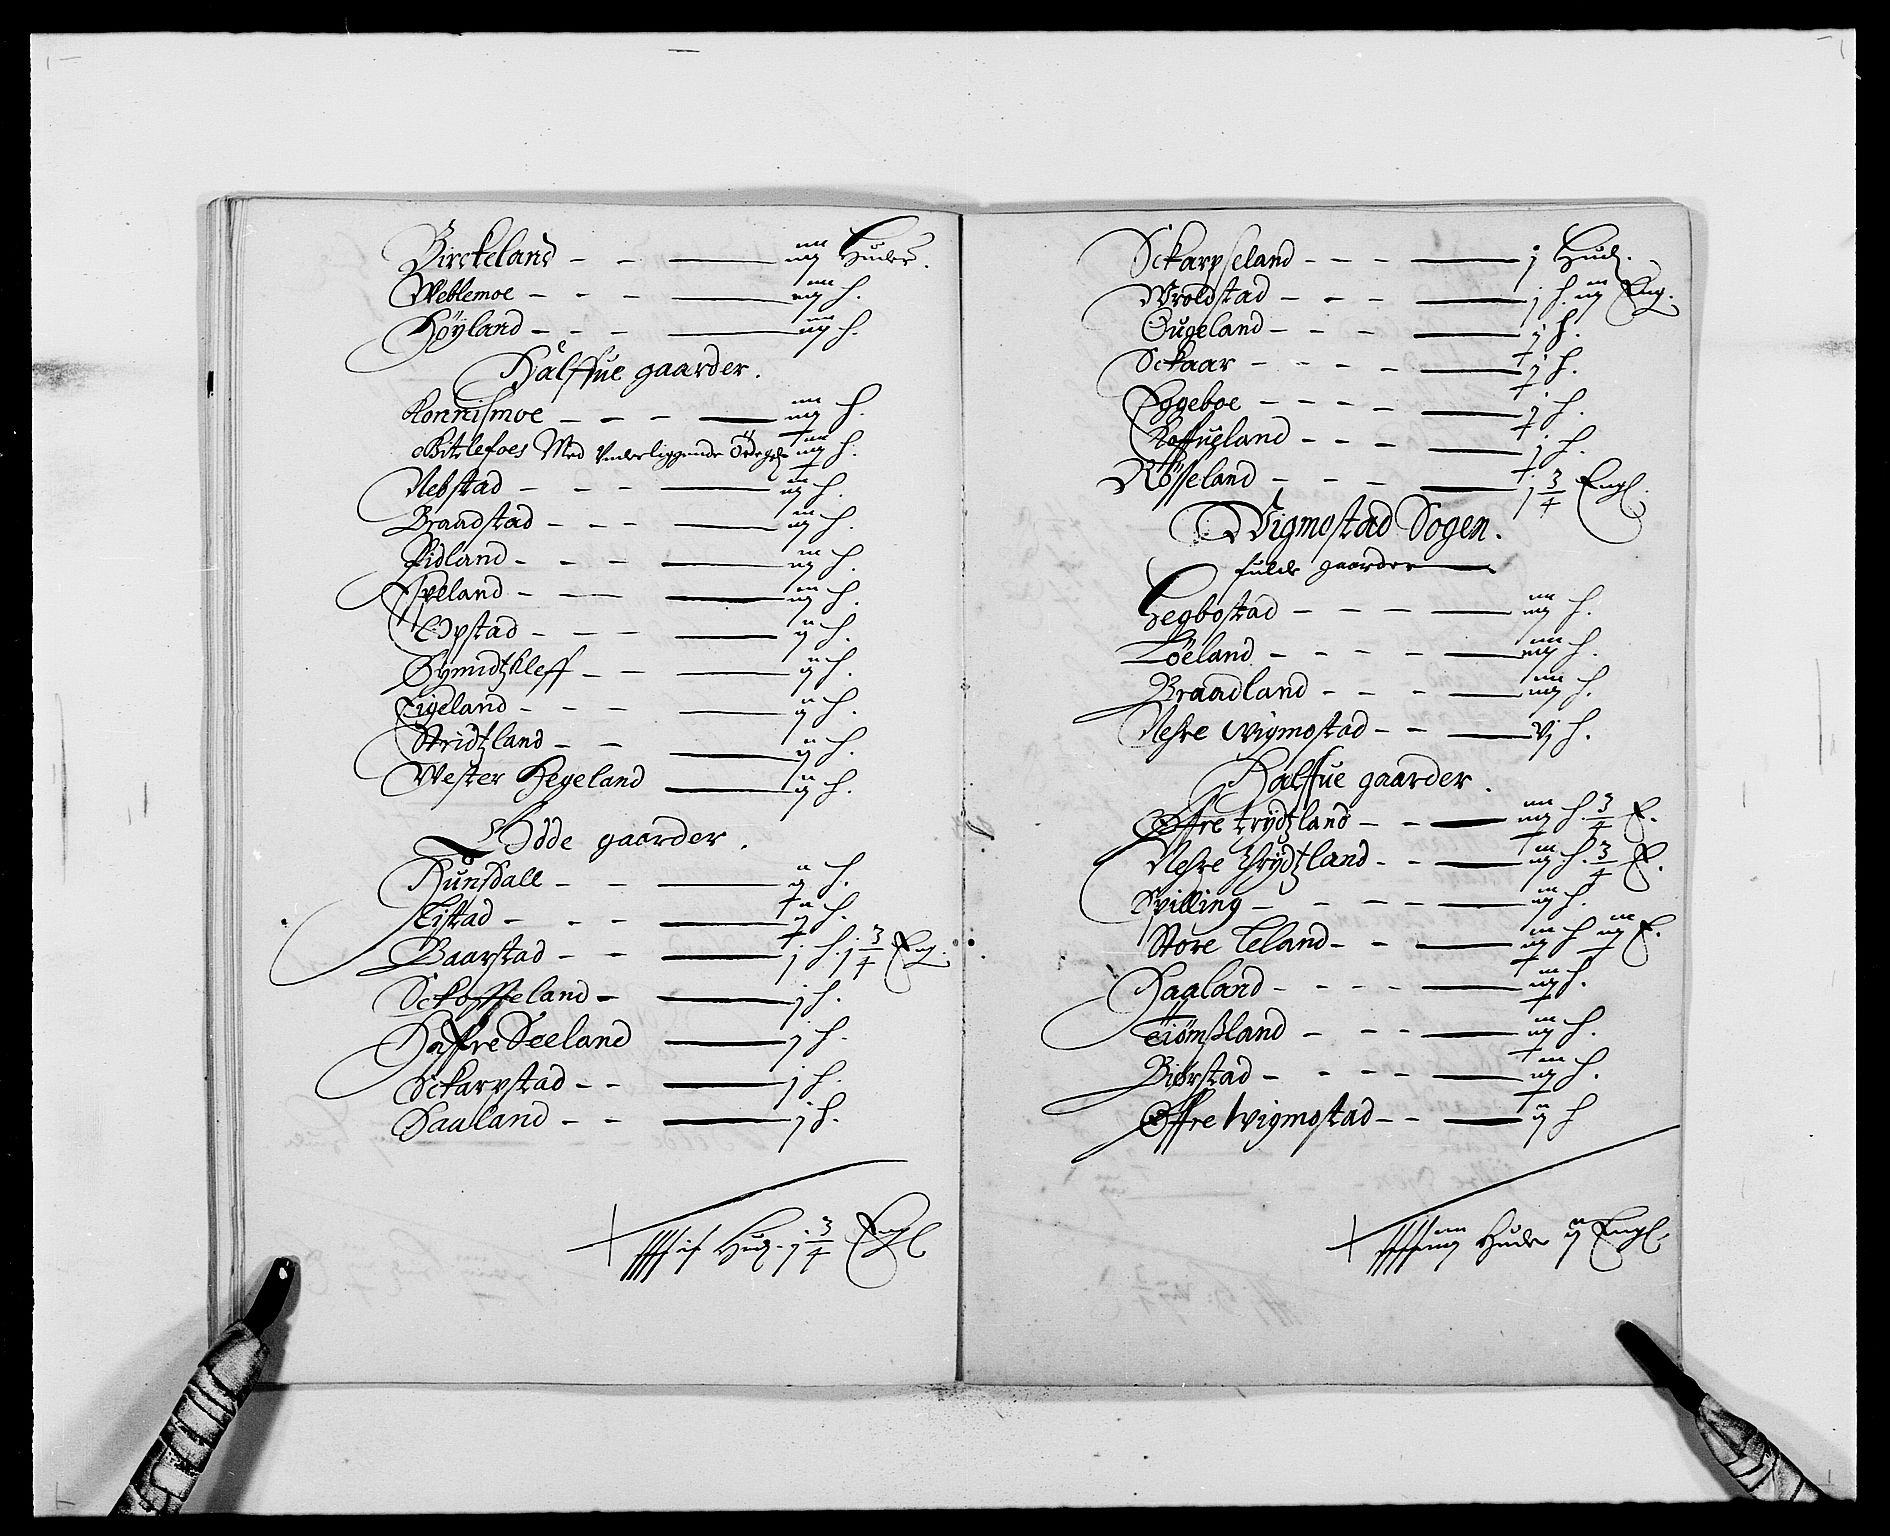 Birckeland - - — iiij Huder.
Weblemoe - - - — iiij h.
Høyland - - - — iij h.
Halffue gaarder.
Konnismoe - - - — iiij h.
Bitlefoes Med Underliggende Ødegd
Nebstad - - - - — iij h.
Braadstad - - - — iij h.
Fidland - - - — iij h.
Speland - - - — iij h.
Opstad - - - — ij h.
Gymidtzkleff - - — ij h.
Eigeland - - - — ij h.
Stridtzland - - — ij h.
Wester Hegeland — ij h.
Ødde gaarder.
Hunsdall - - — ij h.
Tistad - - - — ij h.
Baarstad - - — j h. j 3/4 Eng.
Sckoffteland - — j h.
Høffre Seeland — j h.
Sckarpstad - - — j h.
Haaland - - — j h.
Hud. j 3/4 Engl
Sckarpseland - - - — j Hud.
Wroldstad - - - — j h. iij Eng.
Øugeland - - - — j h.
Sckaar - - - - — j h.
Eggeboe - - - - — j h.
Røffueland - - - — j h.
Røsseland - - - — j 3/4 Engl.
Wigmostad Sogen.
fulde gaarder —
Hegbostad - - - — iiij h.
Løeland - - - - — iiij h.
Braadland - - - — iiij h.
Nehre Wigmostad - - — vj h.
Halffue gaarder.
Øffre trydtzland - - — iiij h. 3/4 E.
Nehre trydtzland - - — iij h. 3/4 E.
Spilling - - - - — iij h.
Store Leland - - — iij h iij E.
Haaland - - - - — iij h.
Tiømßland - - - — iij h.
Biørstad - - - - — iij h.
Øffre Wigmostad - - — ij h
Huder ij Engl.